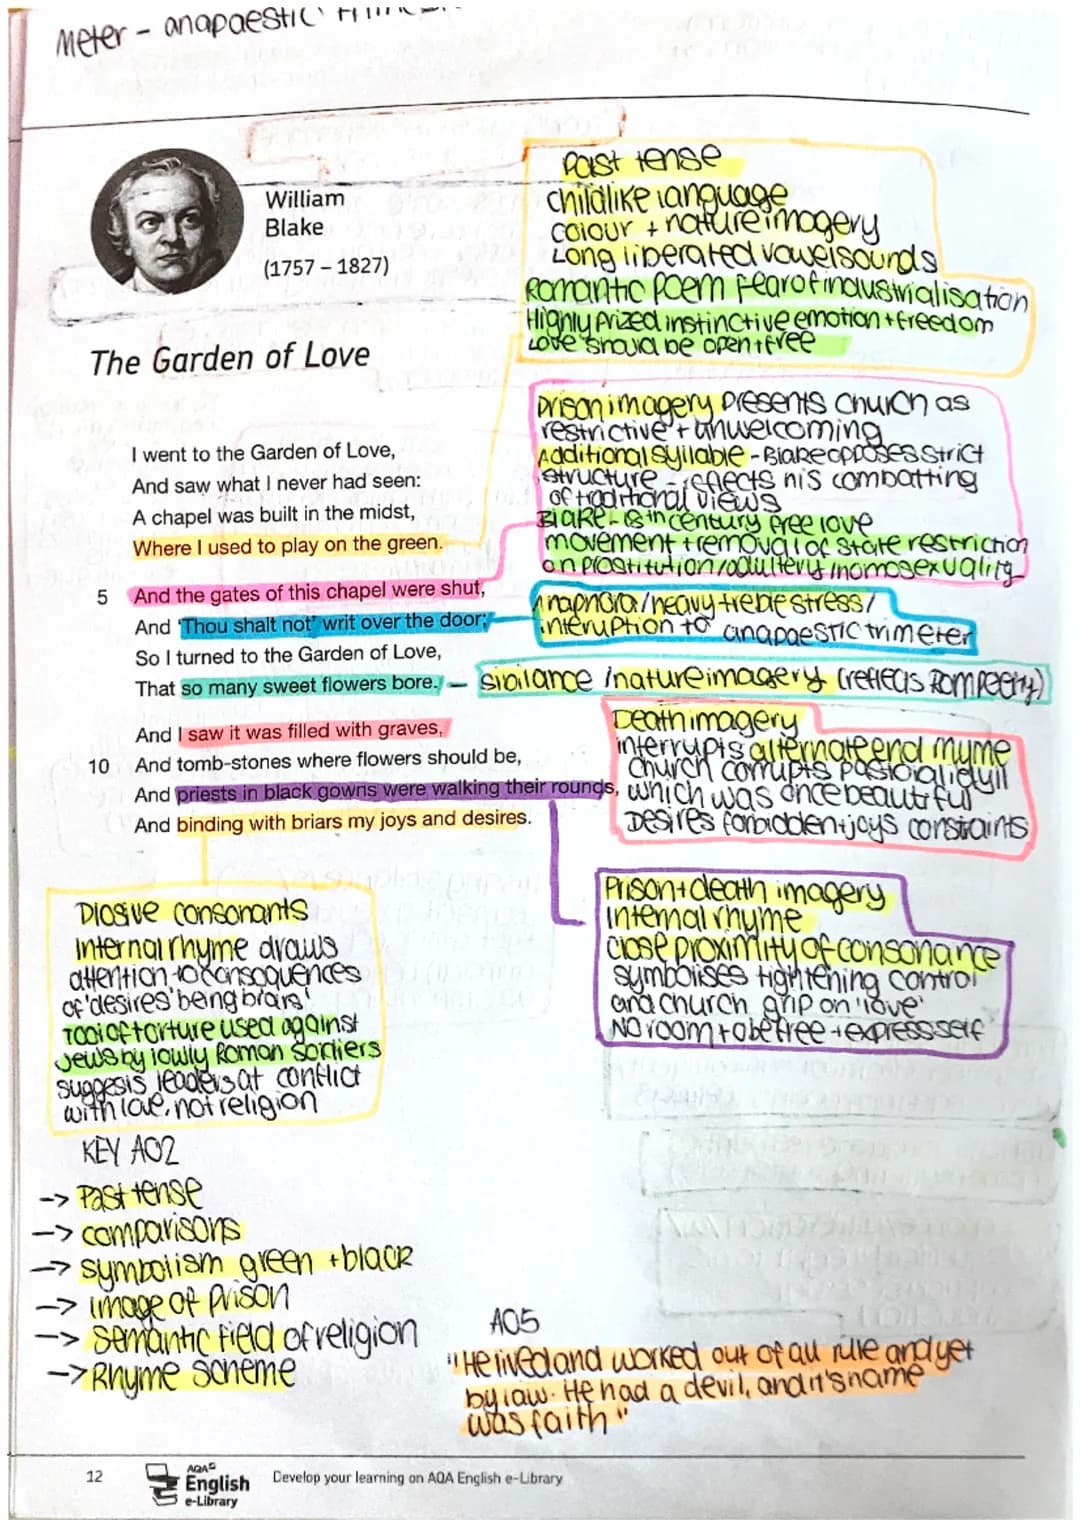 Meter - anapaestic
William
Blake
(1757 – 1827)
The Garden of Love
I went to the Garden of Love,
And saw what I never had seen:
A chapel was built in the midst,
Where I used to play on the green.
5 And the gates of this chapel were shut,
And 'Thou shalt not' writ over the door;
So I turned to the Garden of Love,
That so many sweet flowers bore.
And I saw it was filled with graves,
10 And tomb-stones where flowers should be,
And priests in black gowns were walking their rounds,
And binding with briars my joys and desires.
Past tense
childlike language
colour + nature imagery
Long liberated vowel sounds
Romantic poem fear of industrialisation
Highly prized instinctive emotion + freedom
Love should be open + free
Prison imagery presents church as
restrictive + unwelcoming
Additional syllable - Blake opposes strict
structure - reflects his combatting
of traditional views
Blake - 18th century free love
movement + removal of state restriction
on prostitution/adultery/homosexuality
Anaphora/heavy treble stress/
interuption to anapaestic trimeter
sibilance /nature imagery (reflects Rom peetry)
Death imagery
interrupts alternate end rhyme
church corrupts pastoial idyll
which was once beautiful
Desires forbidden + joys constraints
Prison + death imagery
Internal rhyme
close proximity of consonance
symbolises tightening control
and church grip on 'love'
No room to be free + express self
Plosive consonants
Internal rhyme draws
attention to consequences
of 'desires' being briars'
Tool of torture used against
Jews by lowly Roman soldiers
suggests leaders at conflict
with love, not religion
KEY AO2
-> Past tense
-> comparisons
-> symbolism green + black
-> image of prison
-> semantic field of religion
-> Rhyme scheme
AO5
"He lived and worked out of all rule and yet
by law. He had a devil, and it's name
was faith"
12
AQA
English
e-Library
Develop your learning on AQA English e-Library